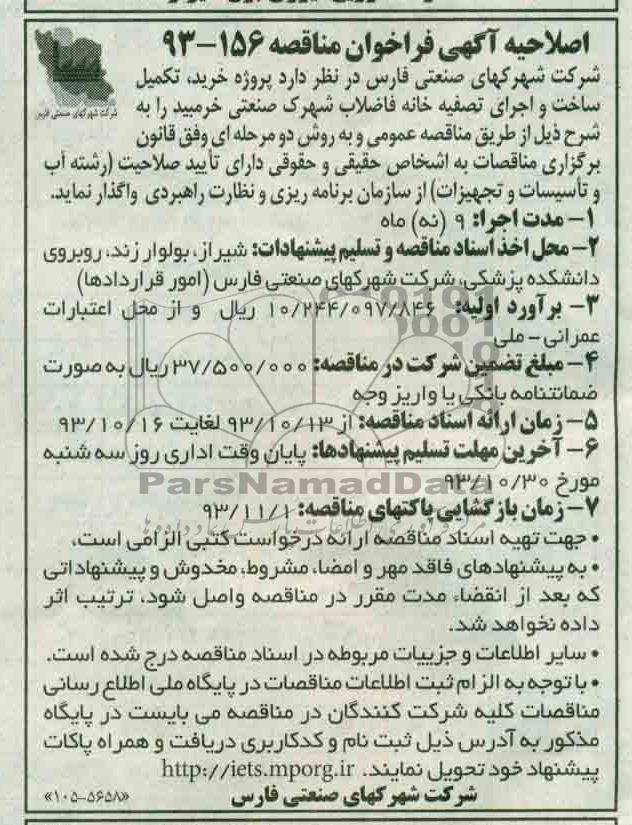 اصلاحیه آگهی فراخوان مناقصه ۱۵۶-۹۳
شرکت شهرکهای صنعتی فارس در نظر دارد پروژه خرید، تکمیل
ساخت و اجرای تصفیه خانه فاضلاب شهرک صنعتی خرمبید را به
شرکت شهرکهای صنعتی فارس
شرح ذیل از طریق مناقصه عمومی و به روش دو مرحله ای وفق قانون
برگزاری مناقصات به اشخاص حقیقی و حقوقی دارای تأیید صلاحیت (رشته آب
و تأسیسات و تجهیزات) از سازمان برنامه ریزی و نظارت راهبردی واگذار نماید.
۱- مدت اجرا: ۹ (نه) ماه
۲- محل اخذ اسناد مناقصه و تسلیم پیشنهادات: شیراز، بولوار زند، روبروی
دانشکده پزشکی، شرکت شهرکهای صنعتی فارس (امور قراردادها)
۳- برآورد اولیه: ۱۰/۲۴۴/۰۹۷/۸۴۶ ریال و از محل اعتبارات
عمرانی - ملی
۴- مبلغ تضمین شرکت در مناقصه: ۳۷/۵۰۰/۰۰۰ ریال به صورت
ضمانتنامه بانکی یا واریز وجه
۵- زمان ارائه اسناد مناقصه: از ۹۳/۱۰/۱۳ لغایت ۹۳/۱۰/۱۶
۶- آخرین مهلت تسلیم پیشنهادها: پایان وقت اداری روز سه شنبه
مورخ ۹۳/۱۰/۳۰
ParsNamadData
۷- زمان بازگشایی پاکتهای مناقصه: ۹۳/۱۱/۱
• جهت تهیه اسناد مناقصه ارائه درخواست کتبی الزامی است.
• به پیشنهادهای فاقد مهر و امضا، مشروط، مخدوش و پیشنهاداتی
که بعد از انقضاء مدت مقرر در مناقصه واصل شود، ترتیب اثر
داده نخواهد شد.
• سایر اطلاعات و جزییات مربوطه در اسناد مناقصه درج شده است.
• با توجه به الزام ثبت اطلاعات مناقصات در پایگاه ملی اطلاع رسانی
مناقصات کلیه شرکت کنندگان در مناقصه می بایست در پایگاه
مذکور به آدرس ذیل ثبت نام و کدکاربری دریافت و همراه پاکات
پیشنهاد خود تحویل نمایند. http://iets.mporg.ir
شرکت شهرکهای صنعتی فارس
«۱۰۵-۵۶۵۸»